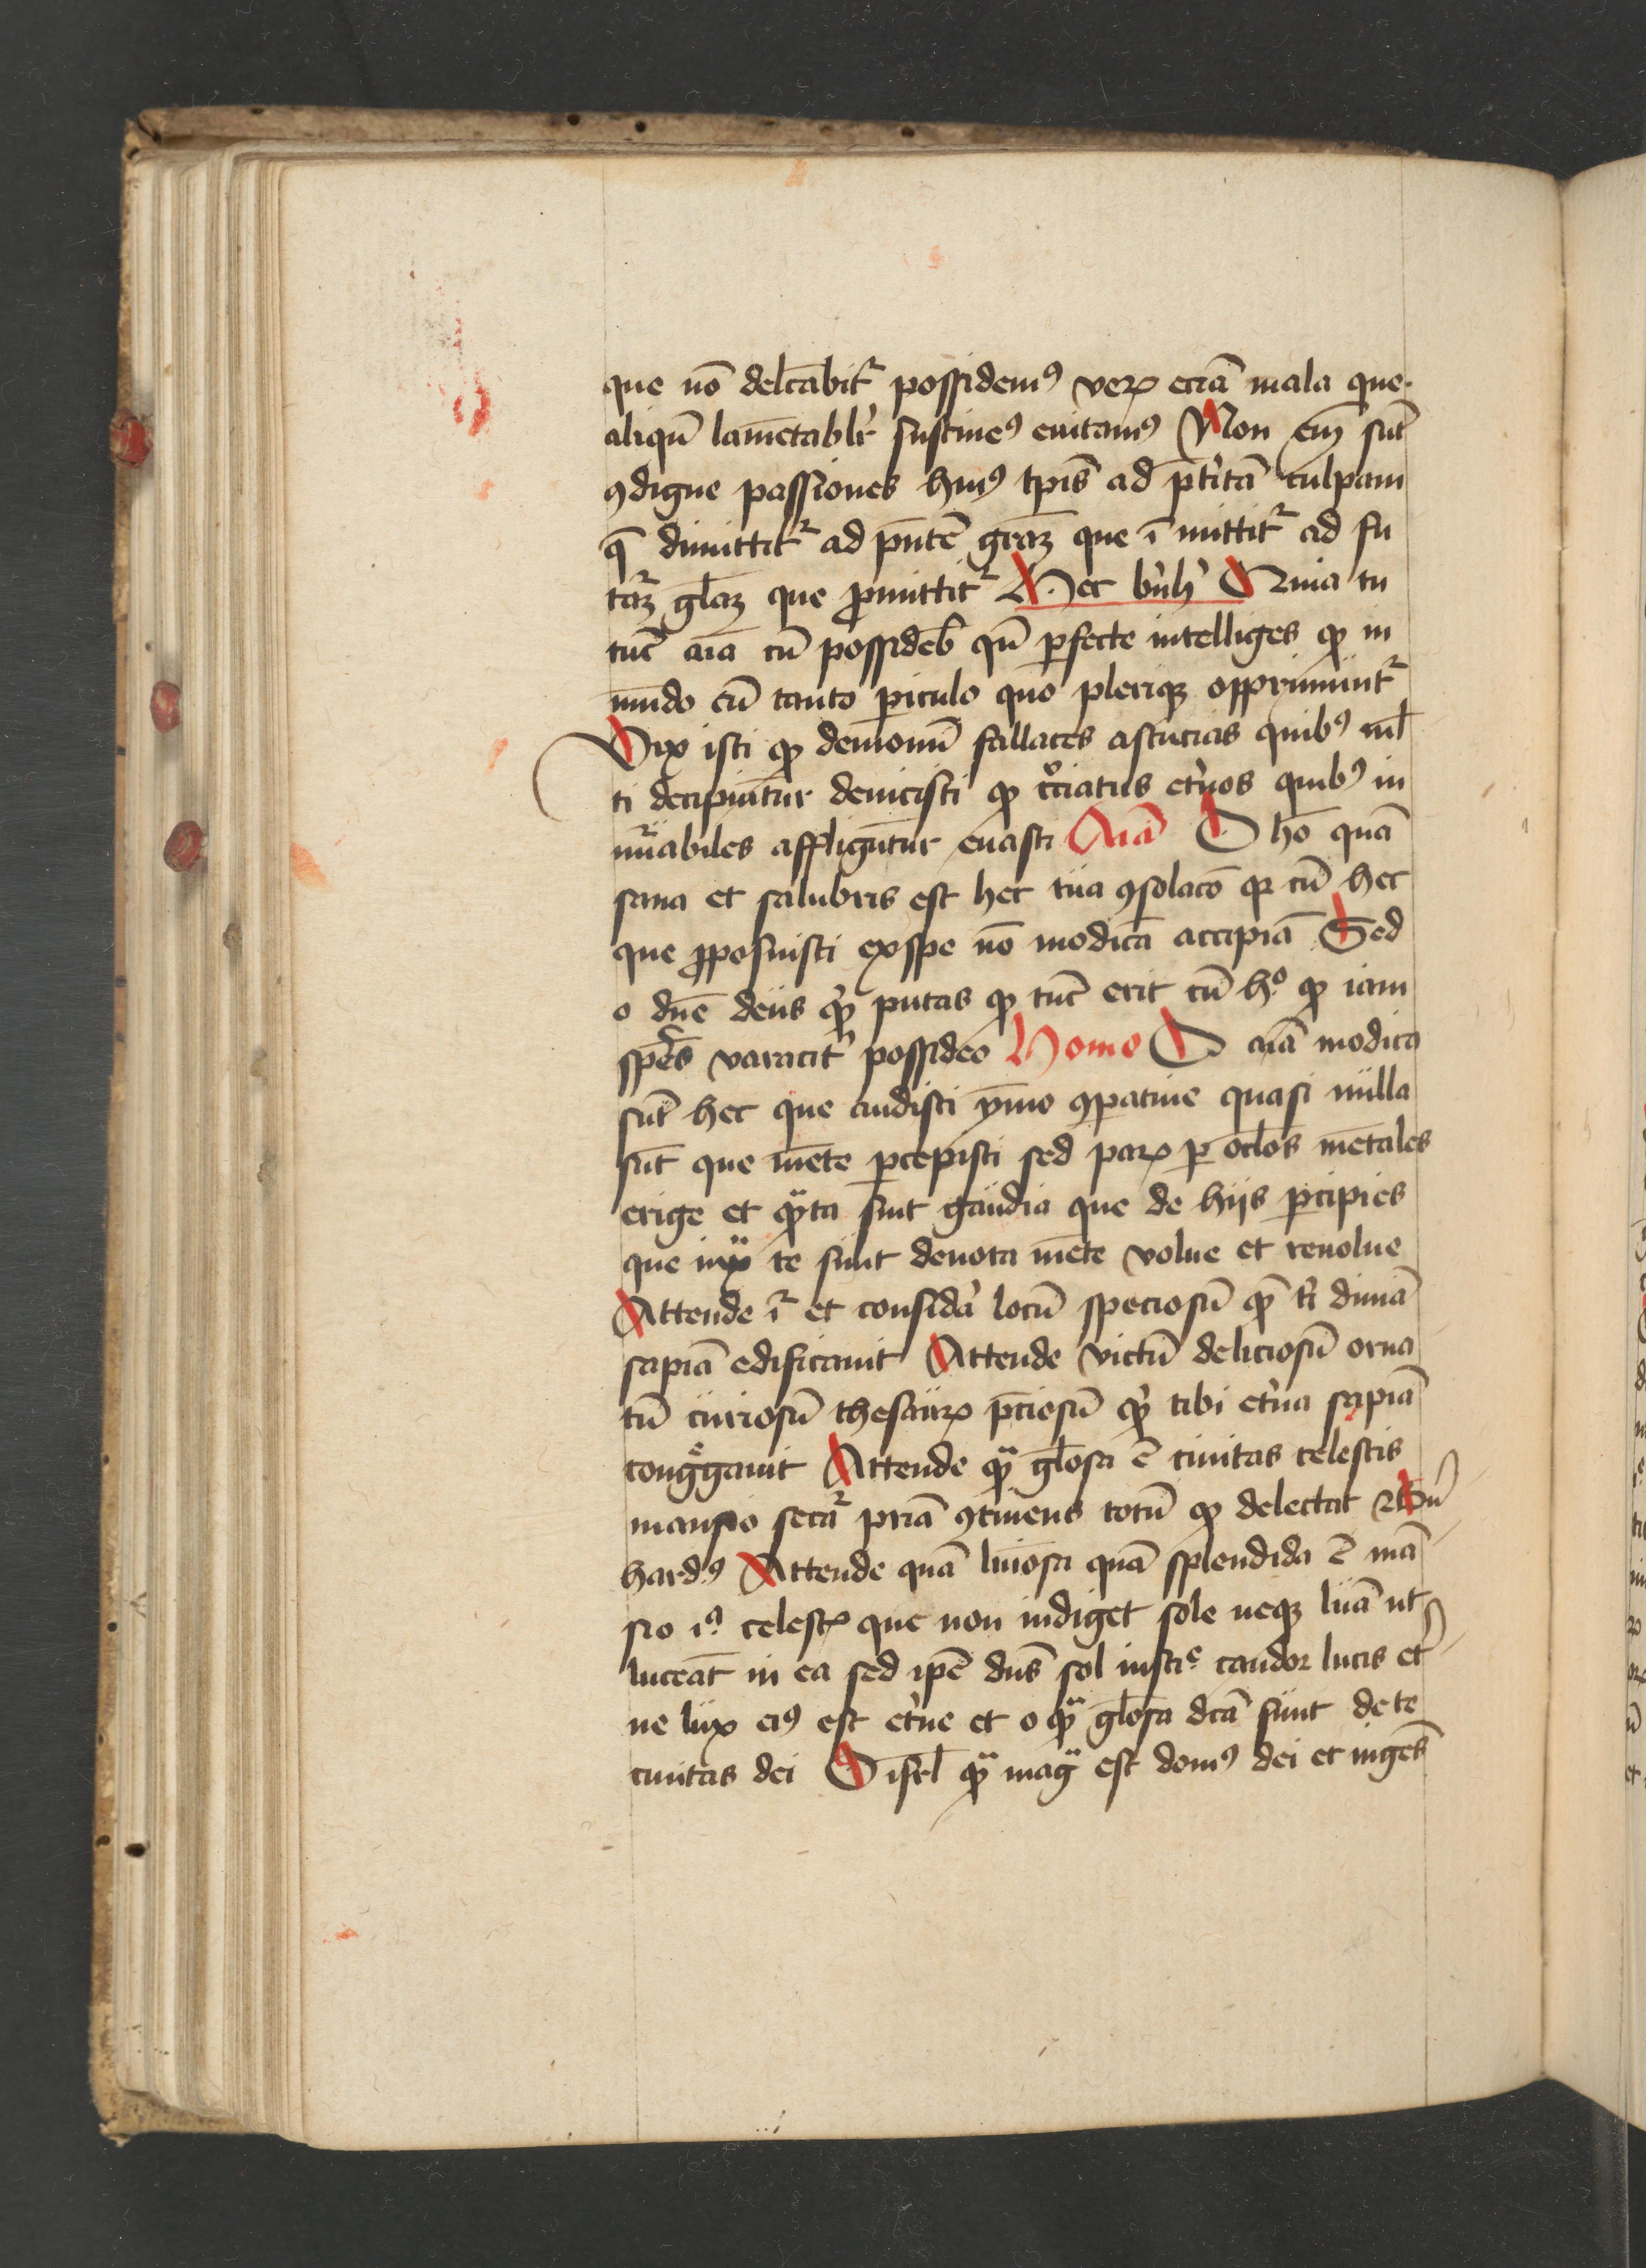 que nō delc̄abit᷑ possidem⁹ verꝝ eciā mala que
aliqn̄ lamētablr̉ sustine⁹ euitam⁹ Non em̄ sūt
ꝯdigne passiones hui⁹ tp̄is ad p̄tītā culpam
q̄ dimittit᷑ ad pn̄tē gr̄aꝫ que ī mittit᷑ ad fu
tu᷑aꝫ gl̄aꝫ que ꝓmittit᷑ Hec bn̉h̉ Quia tu
tūc aīa cū possideb̄ qn̄ ꝑfecte intelliges ꝙ in
mūdo cū tanto ꝑiculo quo pleriqꝫ opprimūnt᷑
Vix isti ꝙ demonū fallaces astucias quib⁹ ml̄
ti decipiūtur deuicisti ꝙ cͦciatus et̉nos quib⁹ in
nu᷑abiles affligūtur euasti Aīa O hō quā
sana et salubris est hec tua ꝯsolacō qꝛ cū hec
que ꝓposuisti ex spe nō modicā accipiā Sed
o dn̄e deus qͥ putas ꝙ tūc erit cū hͦ ꝙ iam
sp̄es varacit̉ possideo Homo O aīa modica
sūt hec que audisti ymo ꝯꝑatiue quasi nulla
sūt que mēte ꝑcepisti sed parꝝ ꝑ oclōs mētales
erige et qͣta sint gaudia que de hijs ꝑcipies
que iuxͣ te sunt deuota mēte volue et reuolue
Attende i᷑ et considā̉ locū speciosū qͣ̄ t̉i diuīa
sapīa edificauit Attende victū deliciosū orna
tū curiosū thesaurꝝ p̄ciosū qͥ̄ tibi et̉na sapīa
congͤgauit Attende qͣ̄ gl̄osa ē ciuitas celestis
mansio secu᷑a pr̄iā ꝯtinens totū ꝙ delectat Bn̄
hard⁹ Attende quā lūiosa quā splendida ē mā
sio iᵃ celestꝭ que non indiget sole neqꝫ lūa ut
luceāt in ea sed ip̄e dn̄s sol iusticͤ candor lucis et̉
ne lux ei⁹ est et̉ne et o qͣ̄ gl̄osa dc̄ā sunt de te
ciuitas dei O isrl̄ qͣ̄ magͣ est dom⁹ dei et ingēs